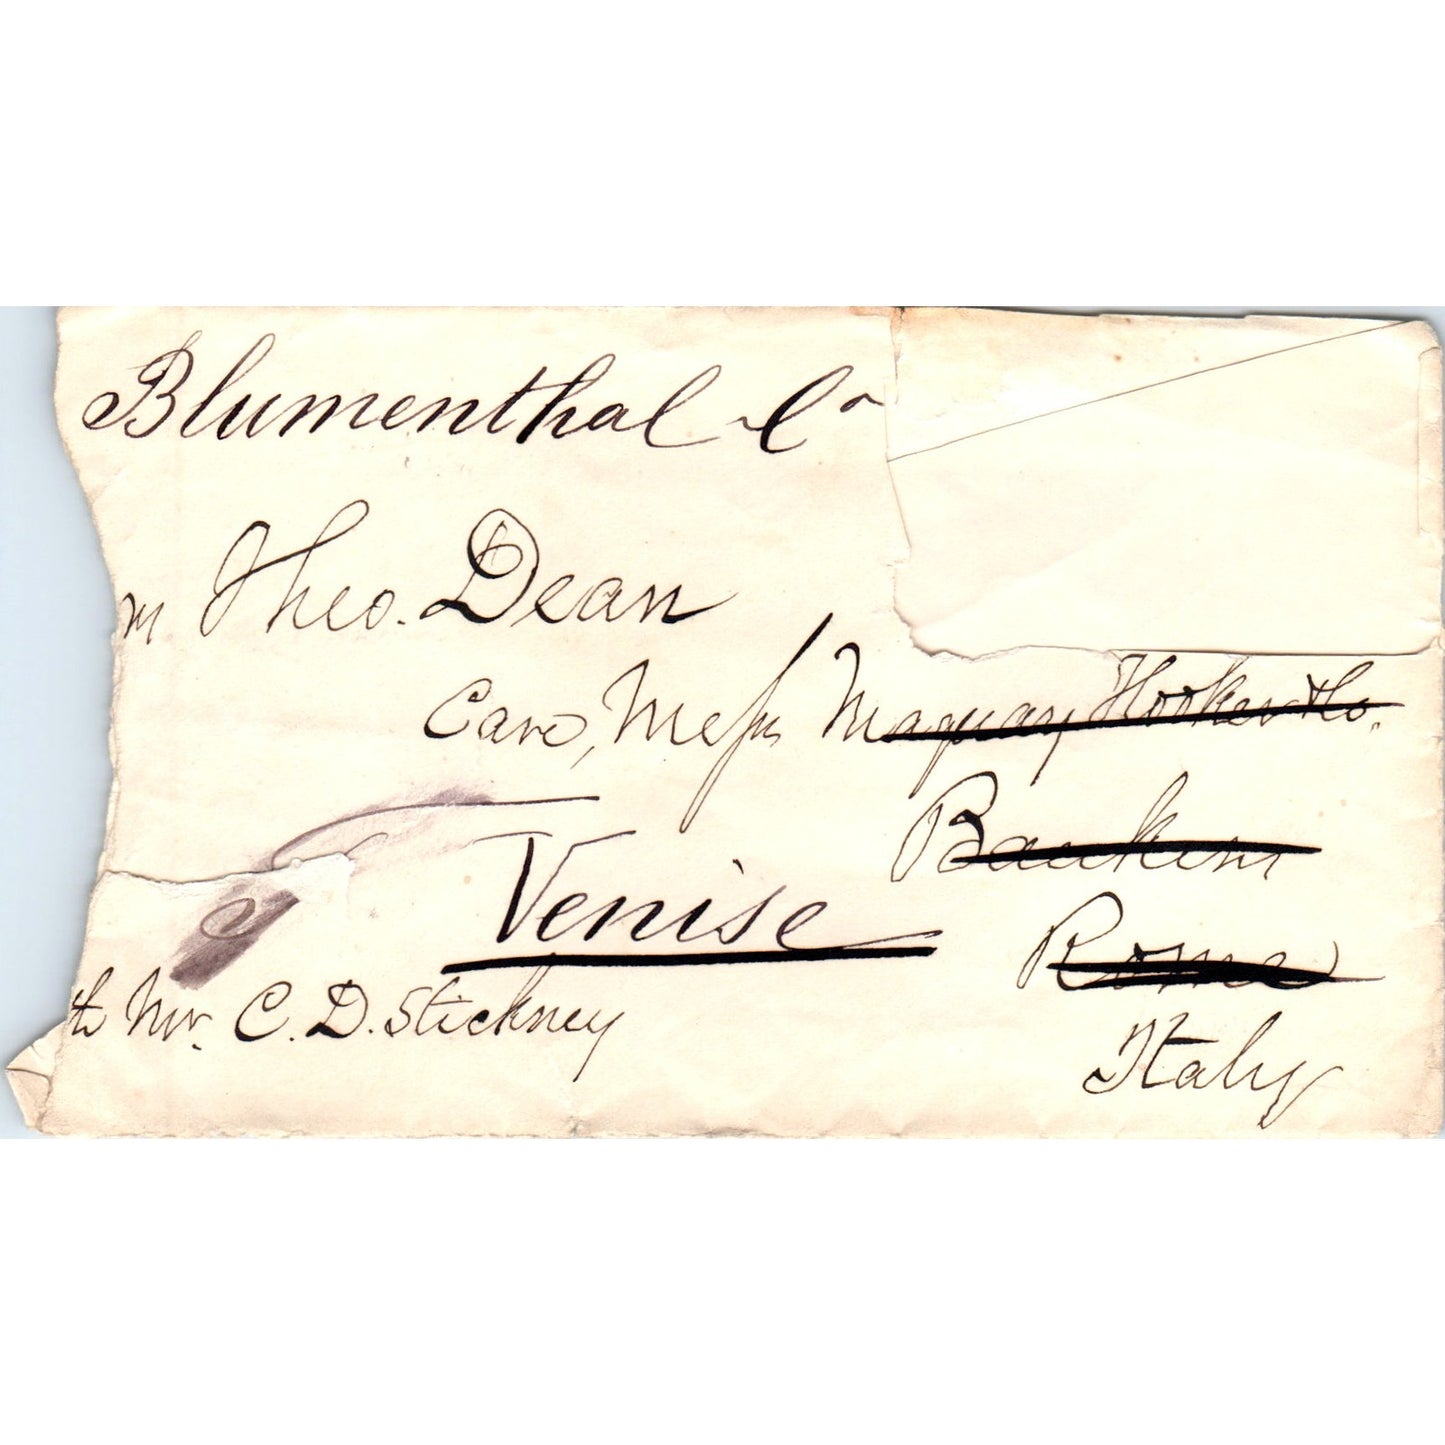 Blumenthal Co
m Theo. Dean
Care, Mess Maquay Hooker & Co.
Bankers
Venise
Rome
th Mr. C. D. Stickney
Italy